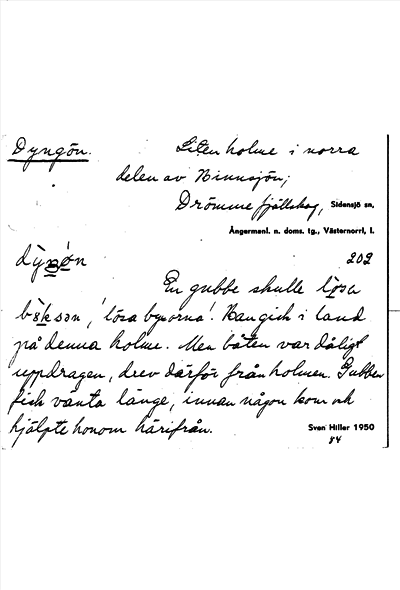 Dyngön.
Liten holme i norra
delen av Ninnsjön;
Drömme fjällskog, Sidensjö sn,
Ångermanl. n. doms. tg., Västernorrl, l.
202
En gubbe skulle lösa
'lösa byxorna'. Han gick i land
på denna holme. Men båten var dåligt
uppdragen, drev därför från holmen. Gubben
fick vänta länge, innan någon kom och
hjälpte honom härifrån.
Sven Hiller 1950
84